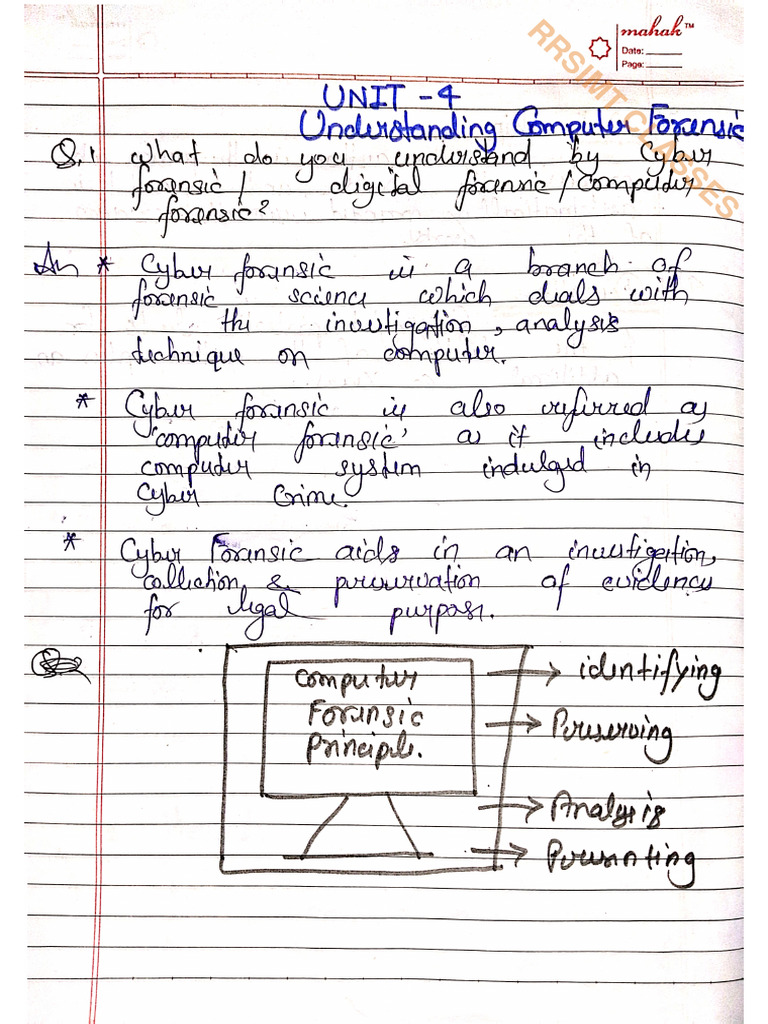 mahak™
Date:
Page:
RRSIMT CLASSES
UNIT - 4
Understanding Computer Forensic
Q.1 What do you understand by Cyber
forensic / digital forensic / Computer
forensic?
An * Cyber forensic is a branch of
forensic science which deals with
the investigation, analysis
technique on computer.
* Cyber forensic is also referred as
'computer forensic' as it includes
computer system indulged in
Cyber Crime.
* Cyber Forensic aids in an investigation,
collection & preservation of evidence
for legal purpose.
Computer
Forensic
Principle.
→ identifying
→ Preserving
→ Analysis
→ Presenting